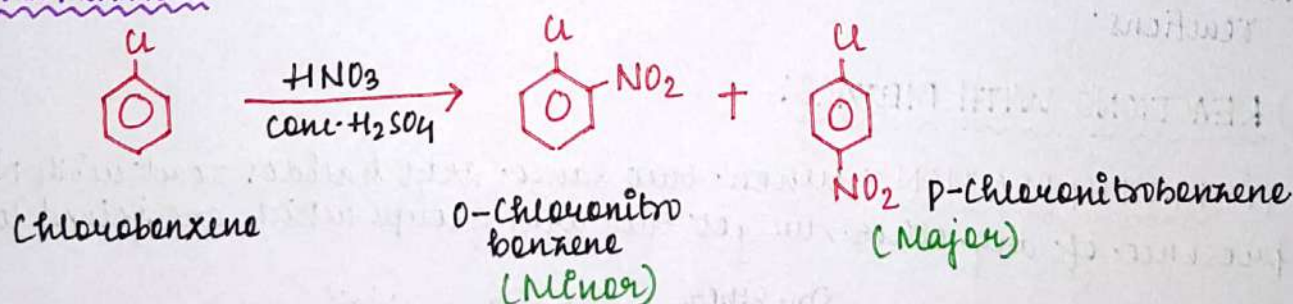 Cl Cl Cl
HNO3
conc. H2SO4
NO2 +
NO2
Chlorobenzene
O-Chloronitro
benzene
(Minor)
p-Chloronitrobenzene
(Major)